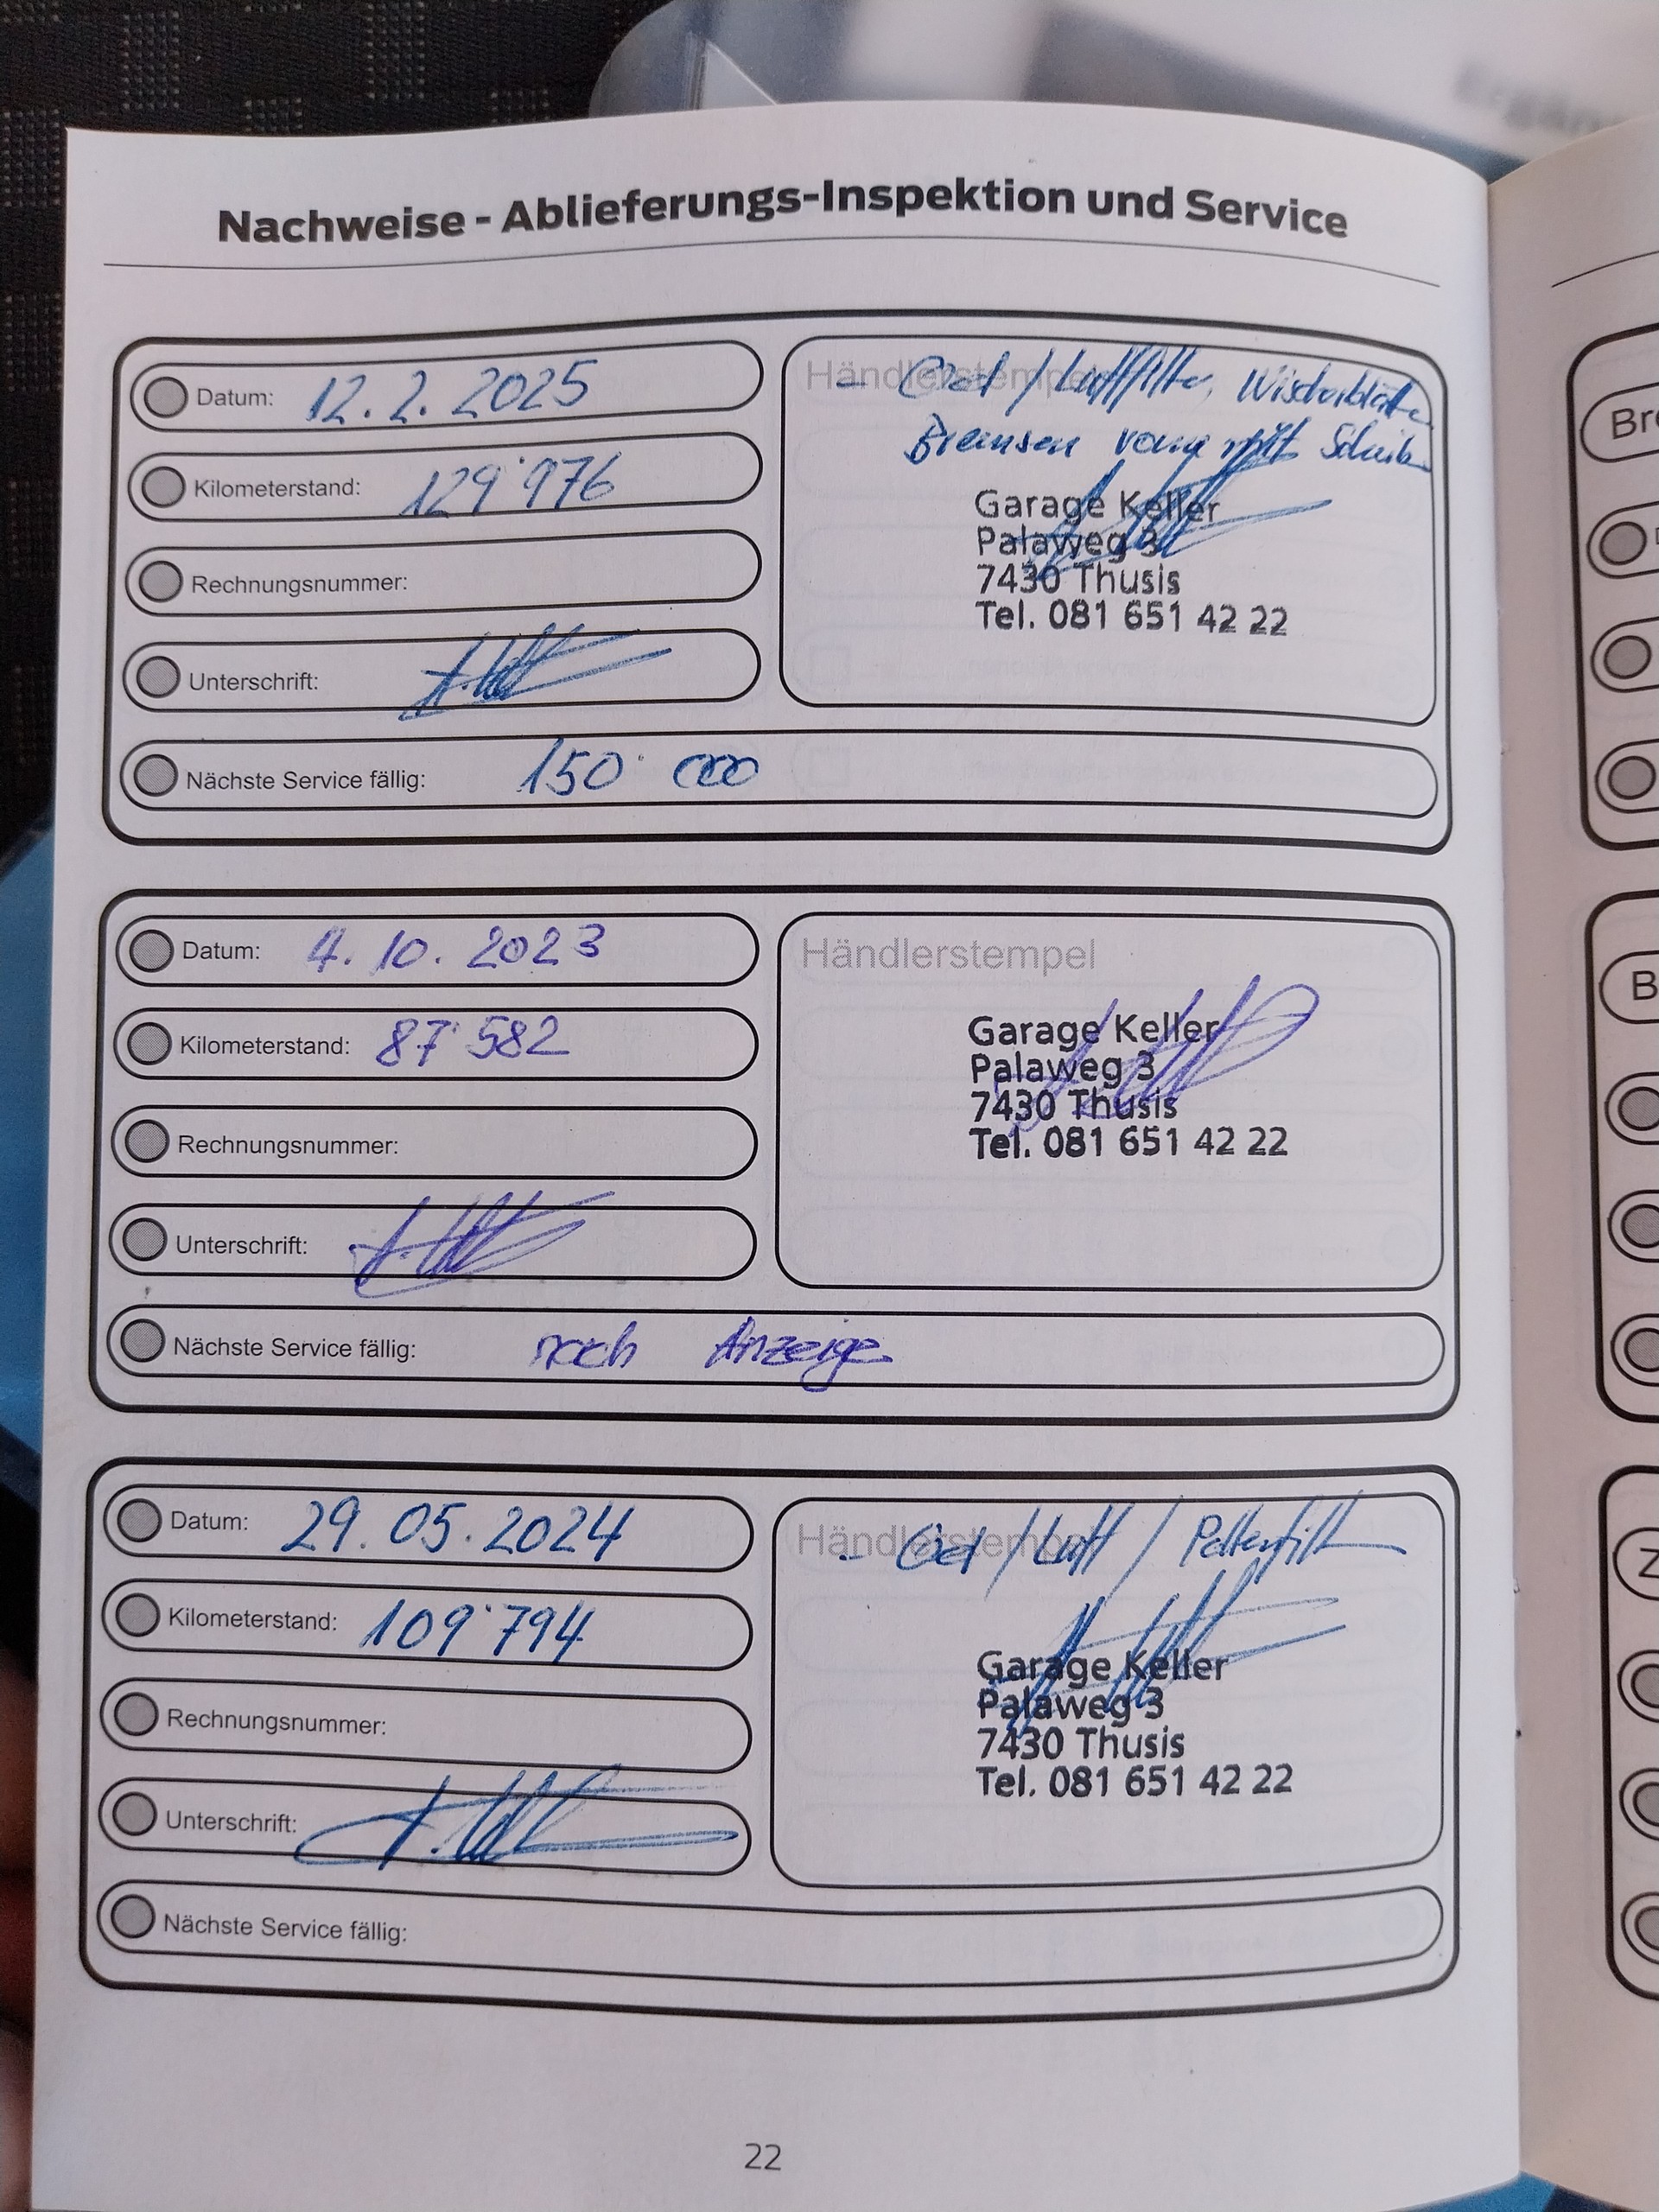 Ergän
Nachweise - Ablieferungs-Inspektion und Service
Datum: 12. 2. 2025
Kilometerstand: 129'976
Rechnungsnummer:
Unterschrift:
Händlerstempel
- Oel / Luftfilter, Wischerblätter
Bremsen vorne mit Scheib
Garage Keller
Palaweg 3
7430 Thusis
Tel. 081 651 42 22
Nächste Service fällig: 150'000
Datum: 4. 10. 2023
Kilometerstand: 87'582
Rechnungsnummer:
Unterschrift:
Händlerstempel
Garage Keller
Palaweg 3
7430 Thusis
Tel. 081 651 42 22
Nächste Service fällig: nach Anzeige
Datum: 29. 05. 2024
Kilometerstand: 109'794
Rechnungsnummer:
Unterschrift:
Händlerstempel
- Oel / Luft / Pollenfilt
Garage Keller
Palaweg 3
7430 Thusis
Tel. 081 651 42 22
Nächste Service fällig:
22
Br
B
Z